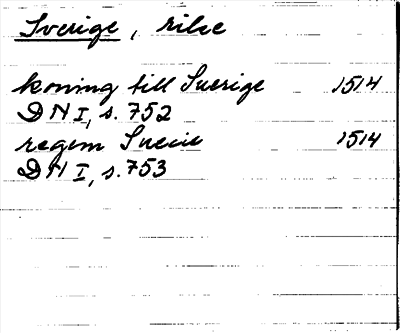 Sverige, rike
koning till Suerige 1514
DN I, s. 752
regem Suecie 1514
DN I, s. 753